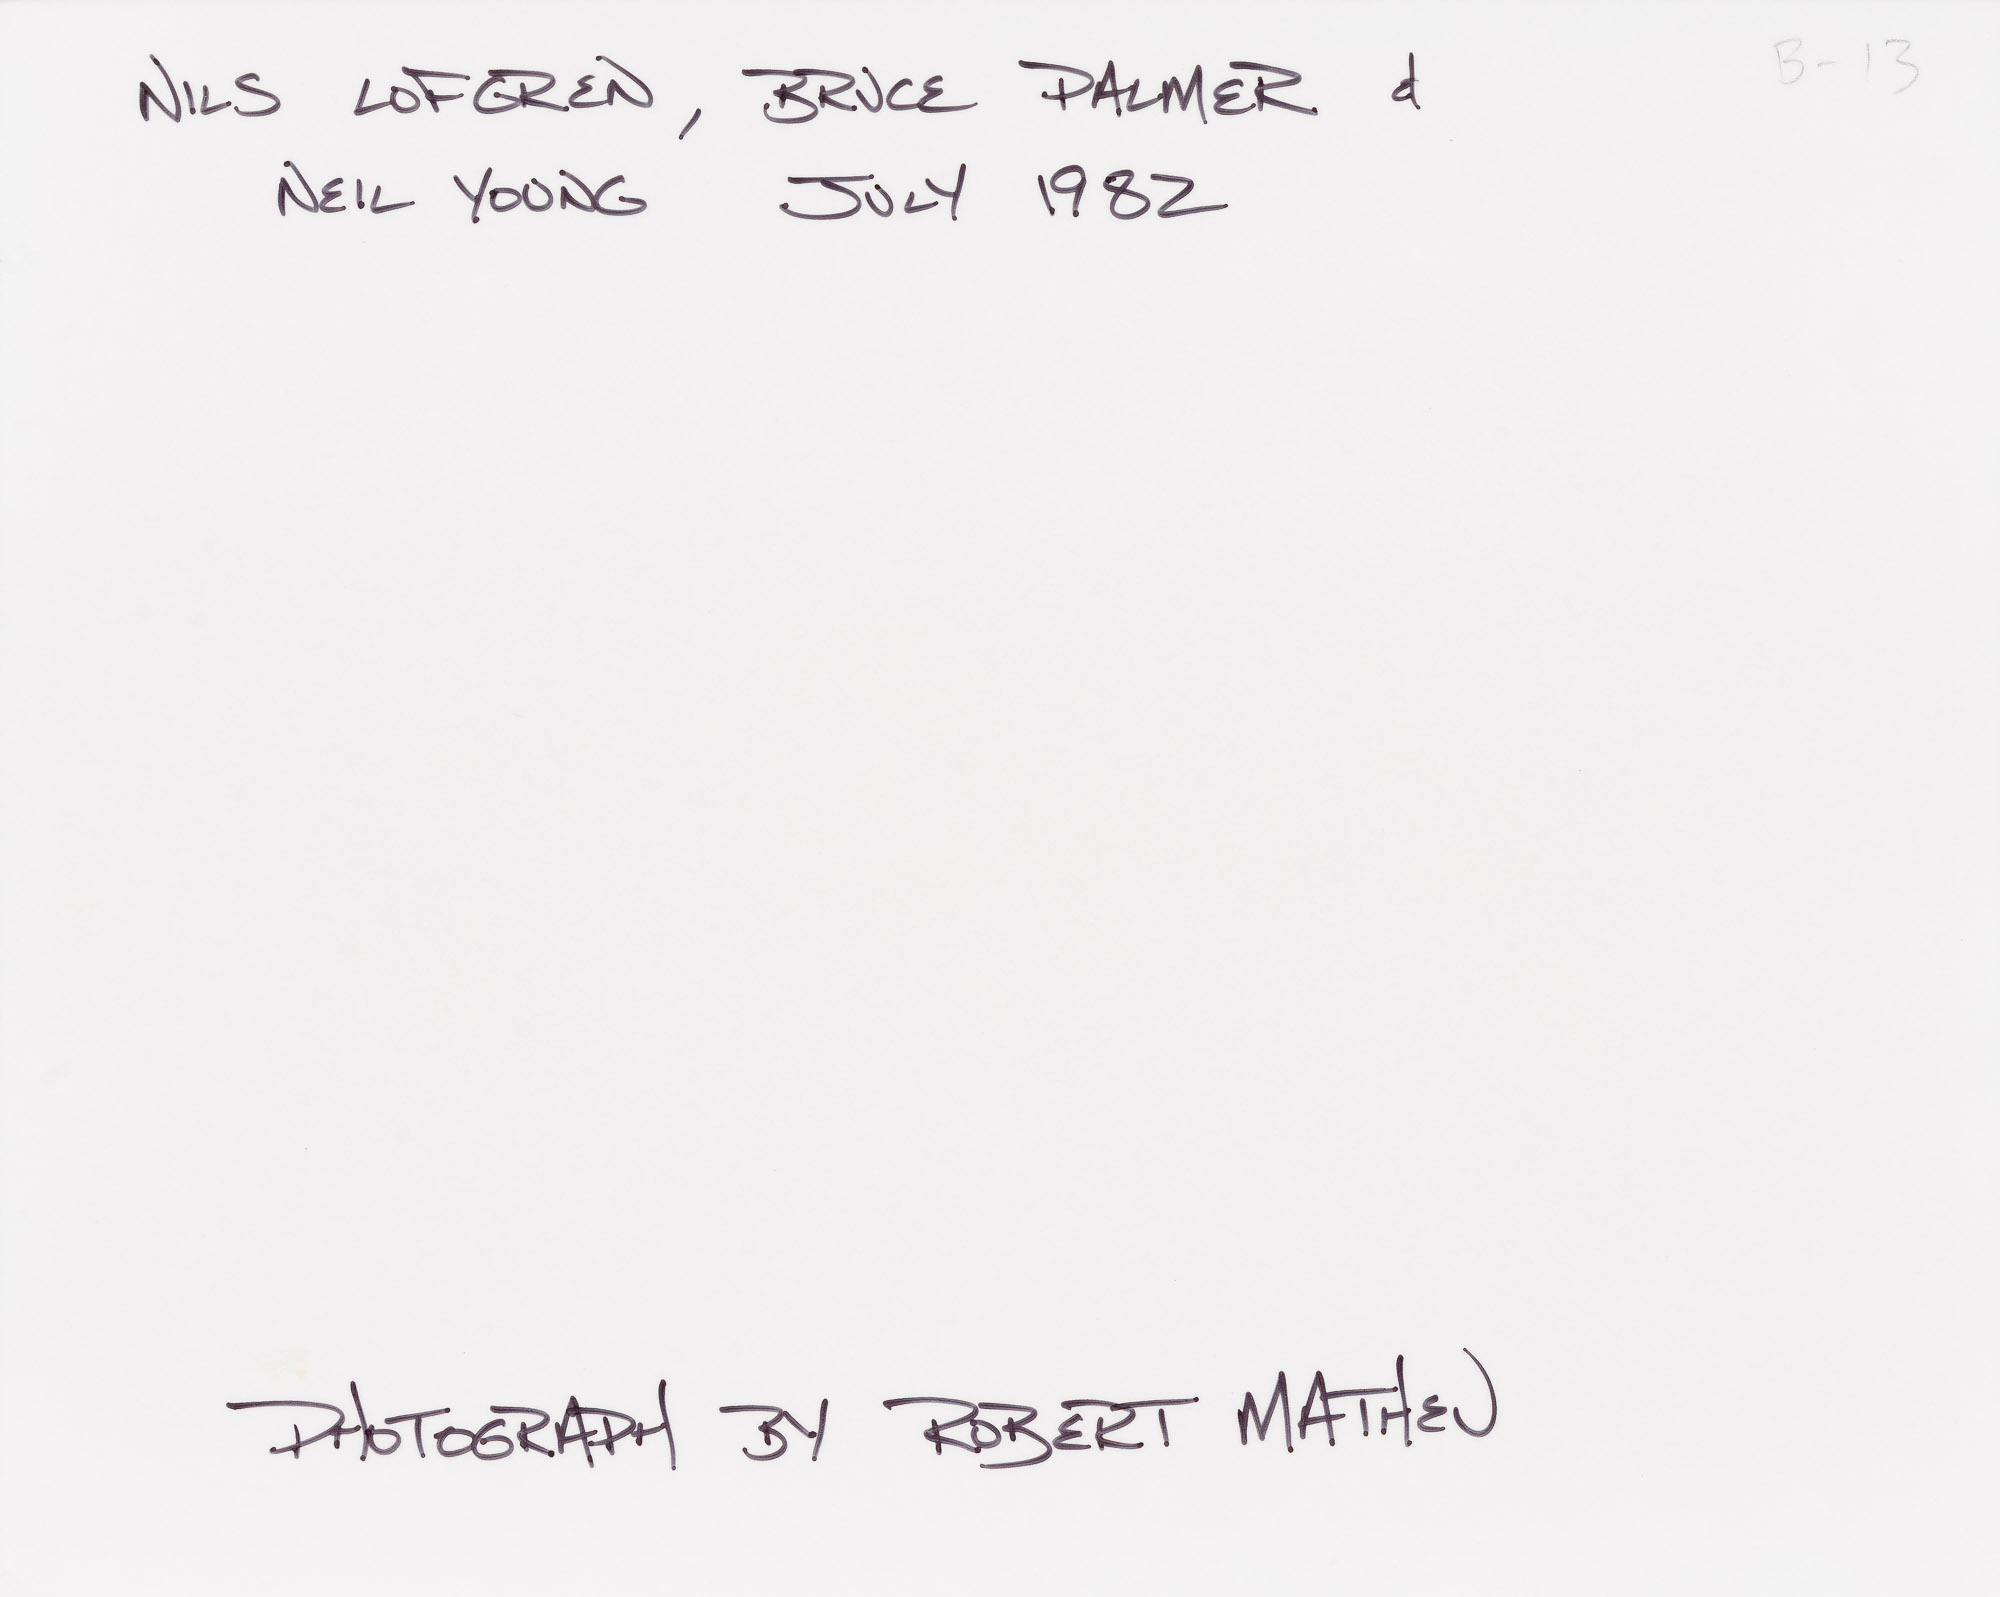 NILS LOFGREN, BRUCE PALMER & B-13
NEIL YOUNG JULY 1982
PHOTOGRAPH BY ROBERT MATHEU